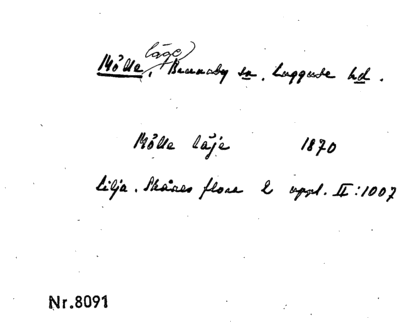 läge
Mölle, Brunnby sn, Luggude hd.
Mölle läje 1870
Lilja. Skånes flora 2 uppl. II:1007
Nr.8091